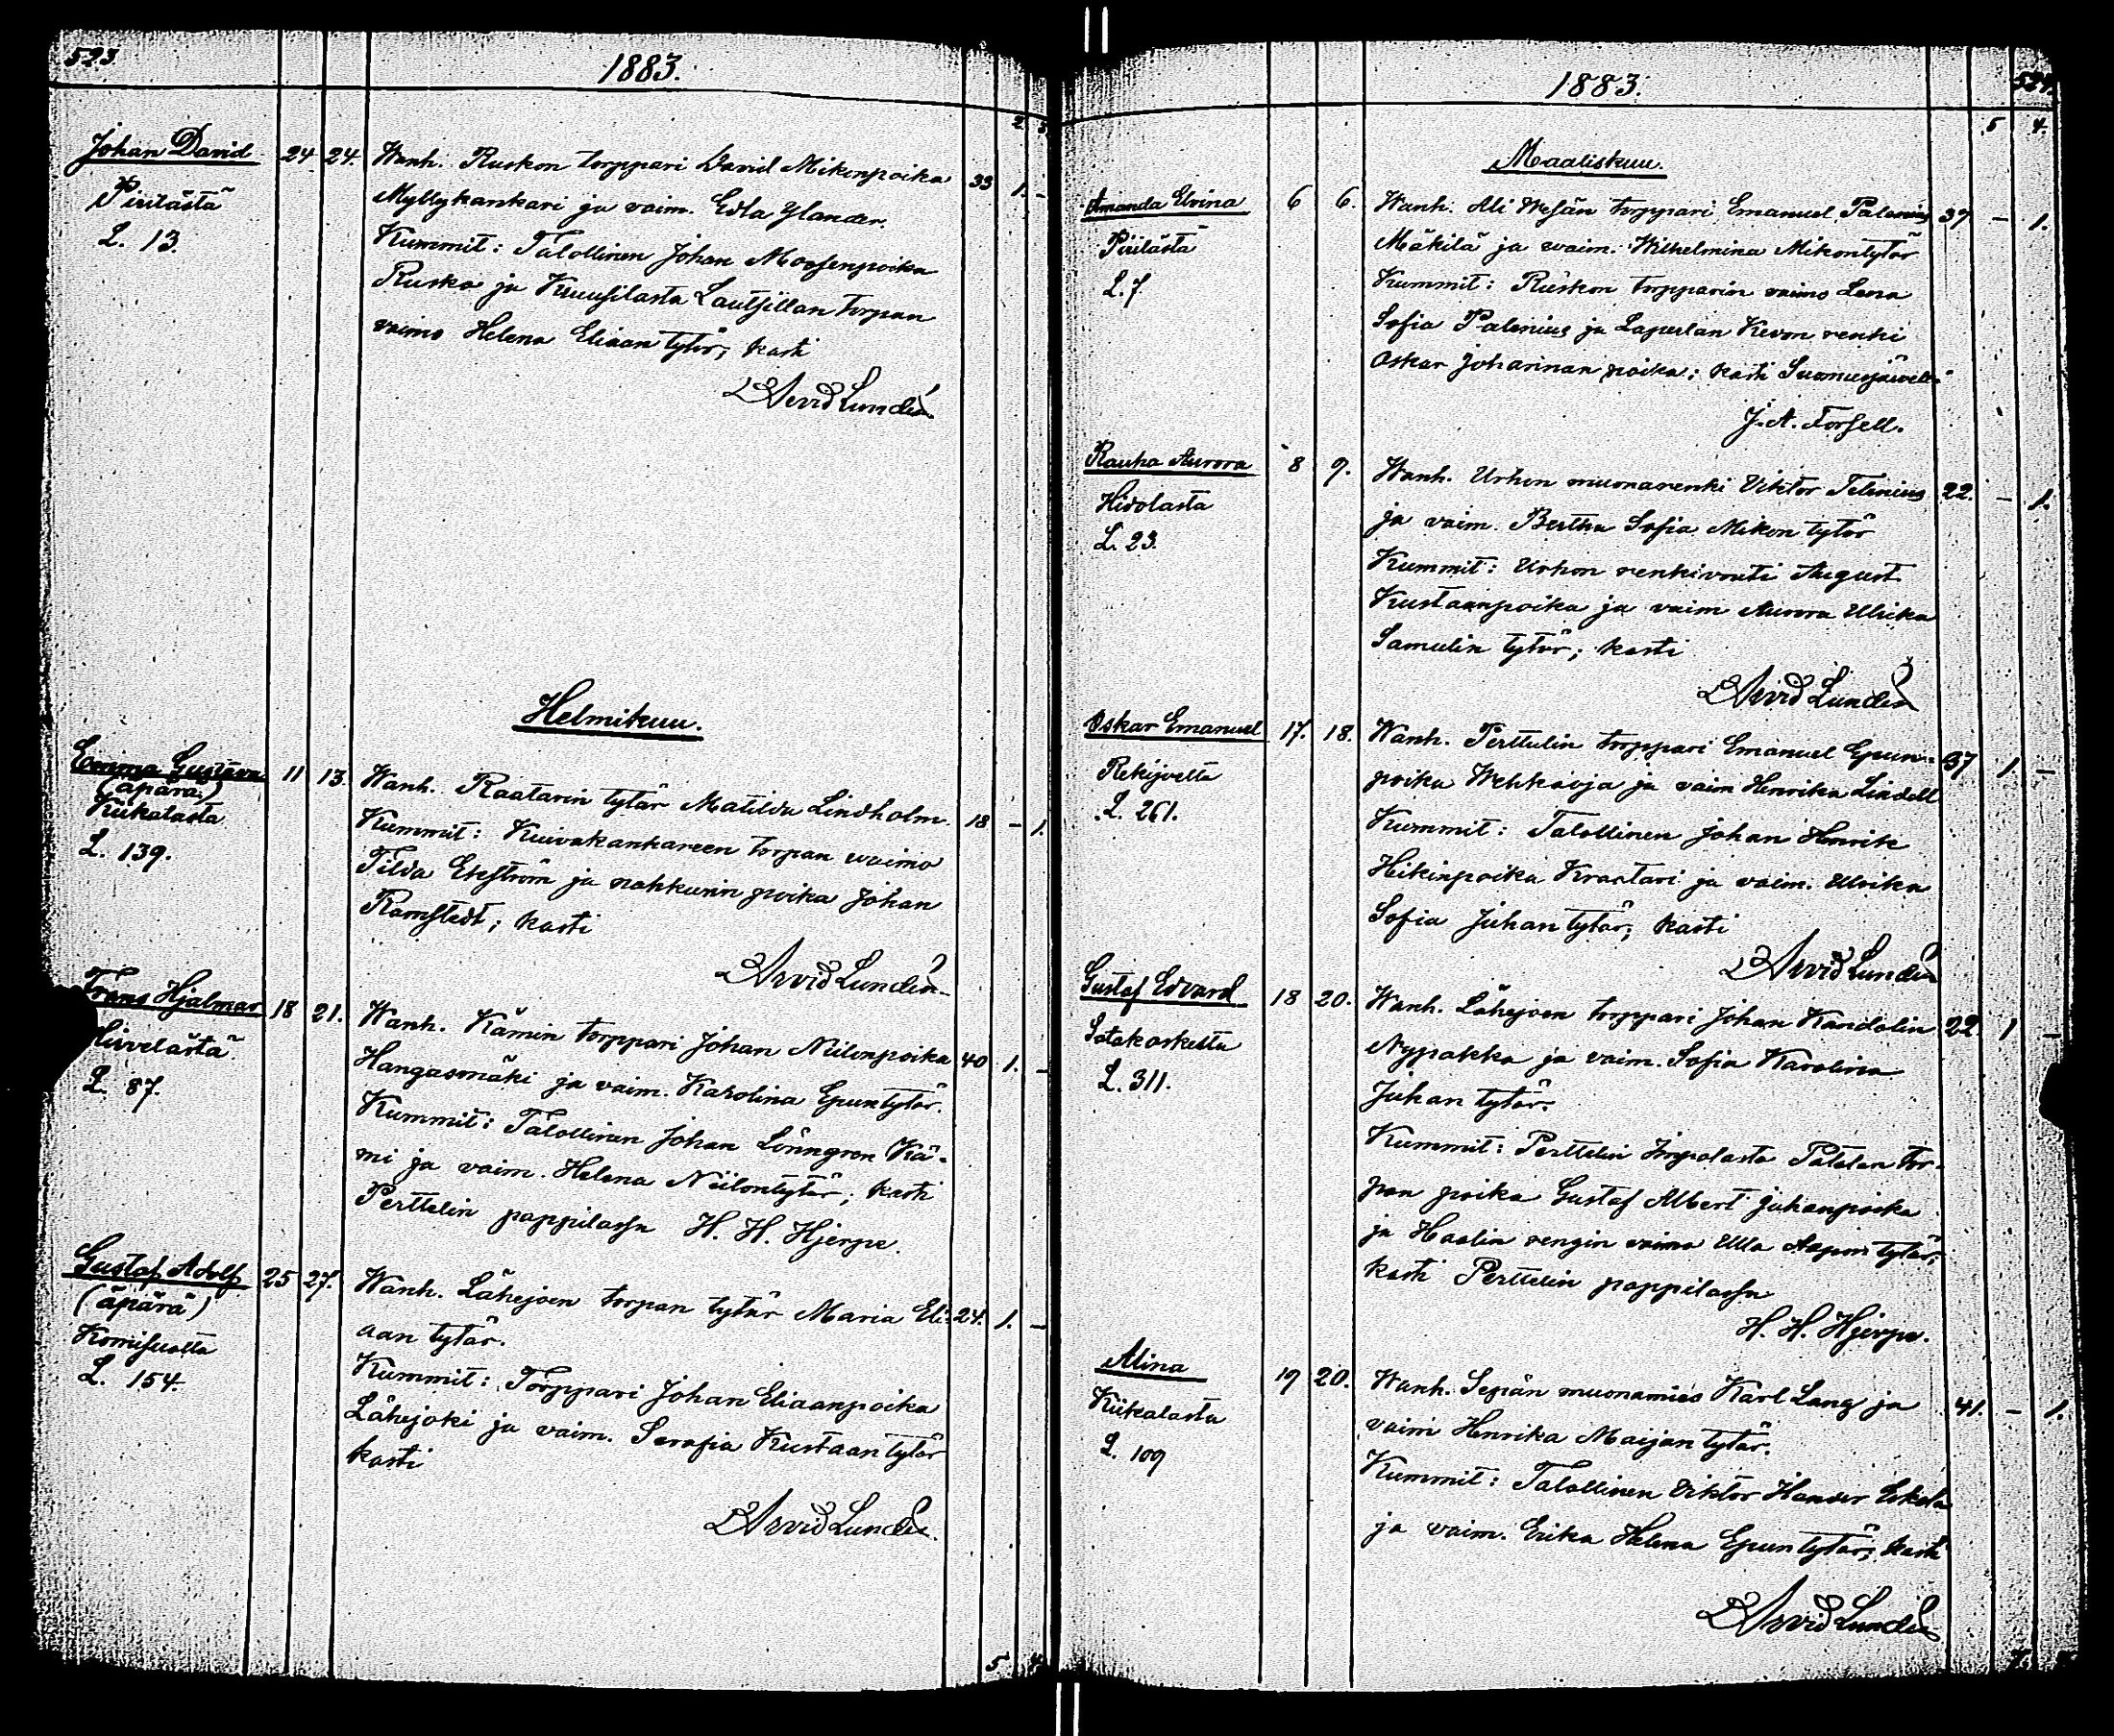 523.
1883.
2. 3.
Johan David 24 24. Wanh. Ruskon torppari David Mikonpoika 33 1. -
Piirilästä Myllykankari ja vaim. Edla Ylander.
L. 13. Kummit: Talollinen Johan Moosenpoika
Rusko ja Kuusilasta Lautsillan torpan
vaimo Helena Eliaan tytär; kasti
Arvid Lundén.
Helmikuu.
Emma Gustava 11 13. Wanh. Raatarin tytär Matilda Lindholm. 18 - 1.
(äpärä) Kummit: Kuivakankareen torpan vaimo
Kiikalasta Tilda Ekström ja nahkurin poika Johan
L. 139. Ramstedt; kasti
Arvid Lundén.
Frans Hjalmar 18 21. Wanh. Kämin torppari Johan Niilonpoika 40 1. -
Hirvelästä Hangasmäki ja vaim. Karolina Epuntytär.
L. 87. Kummit: Talollinen Johan Lönngren Kä-
mi ja vaim. Helena Niilontytär; kasti
Perttelin pappilassa H. H. Hjerpe.
Gustaf Adolf 25 27. Wanh. Lähejoen torpan tytär Maria Eli- 24. 1. -
(äpärä) aan tytär.
Komisuolta Kummit: Torppari Johan Eliaanpoika
L. 154. Lähejoki ja vaim. Serafia Kustaan tytär
kasti
Arvid Lundén.
5
1883.
524.
5 4.
Maaliskuu.
Amanda Elvina 6 6. Wanh. Ali Wesän torppari Emanuel Palenius 37 - 1.
Piirilästä Mäkilä ja vaim. Wilhelmina Mikontytär
L. 7. Kummit: Ruskon torpparin vaimo Lena
Sofia Palenius ja Laperlan Kevon renki
Oskar Johannan poika; kasti Suomusjärvellä
J. A. Forsell.
Rauha Aurora 8 9. Wanh. Urhon muonarenki Viktor Telenius 22. - 1.
Hidolasta ja vaim. Bertha Sofia Mikon tytär
L. 23. Kummit: Urhon renkivouti August
Kustaanpoika ja vaim Aurora Ulrika
Samulin tytär; kasti
Arvid Lundén
Oskar Emanuel 17. 18. Wanh. Perttulin torppari Emanuel Epun- 37 1 -
Rekijoelta poika Wehkaoja ja vaim Henrika Lindell
L. 261. Kummit: Talollinen Johan Henrik
Hikinpoika Kraatari ja vaim. Ulrika
Sofia Juhan tytär; kasti
Arvid Lundén
Gustaf Edvard 18 20. Wanh. Lähejoen torppari Johan Kandolin 22. 1 -
Satakoskelta Nypakka ja vaim. Sofia Karolina
L. 311. Juhan tytär.
Kummit: Perttelin Inpolasta Patelan tor-
pan poika Gustaf Albert Juhanpoika
ja Haalin rengin vaimo Ulla Aapon tytär;
kasti Perttelin pappilassa
H. H. Hjerpe.
Alina 19 20. Wanh. Sepän muonamies Karl Lang ja 41. - 1.
Kiikalasta vaim Henrika Maijan tytär.
L. 109 Kummit: Talollinen Viktor Hander Erkola
ja vaim. Erika Helena Epun tytär; kasti
Arvid Lundén